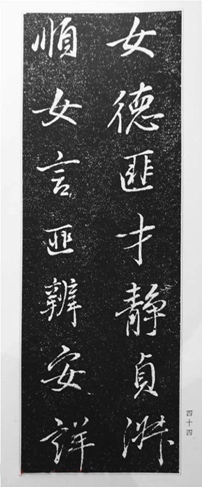 女德匪才靜貞淑
順女言匪辨安詳
四十四